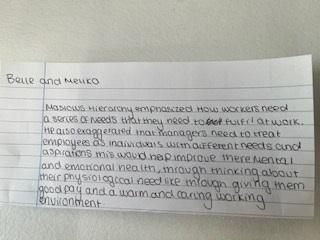 Belle and Meliko
Maslows Hierarchy emphasized How workers need
a series of needs that they need to fulfil at work.
He also exaggerated that managers need to treat
employees as individuals with different needs and
aspirations this would help improve there mental
and emotional health, through thinking about
their physiological need like through giving them
good pay and a warm and caring working
environment.